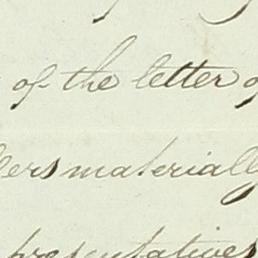 of the letter of
ers materially
presentatives